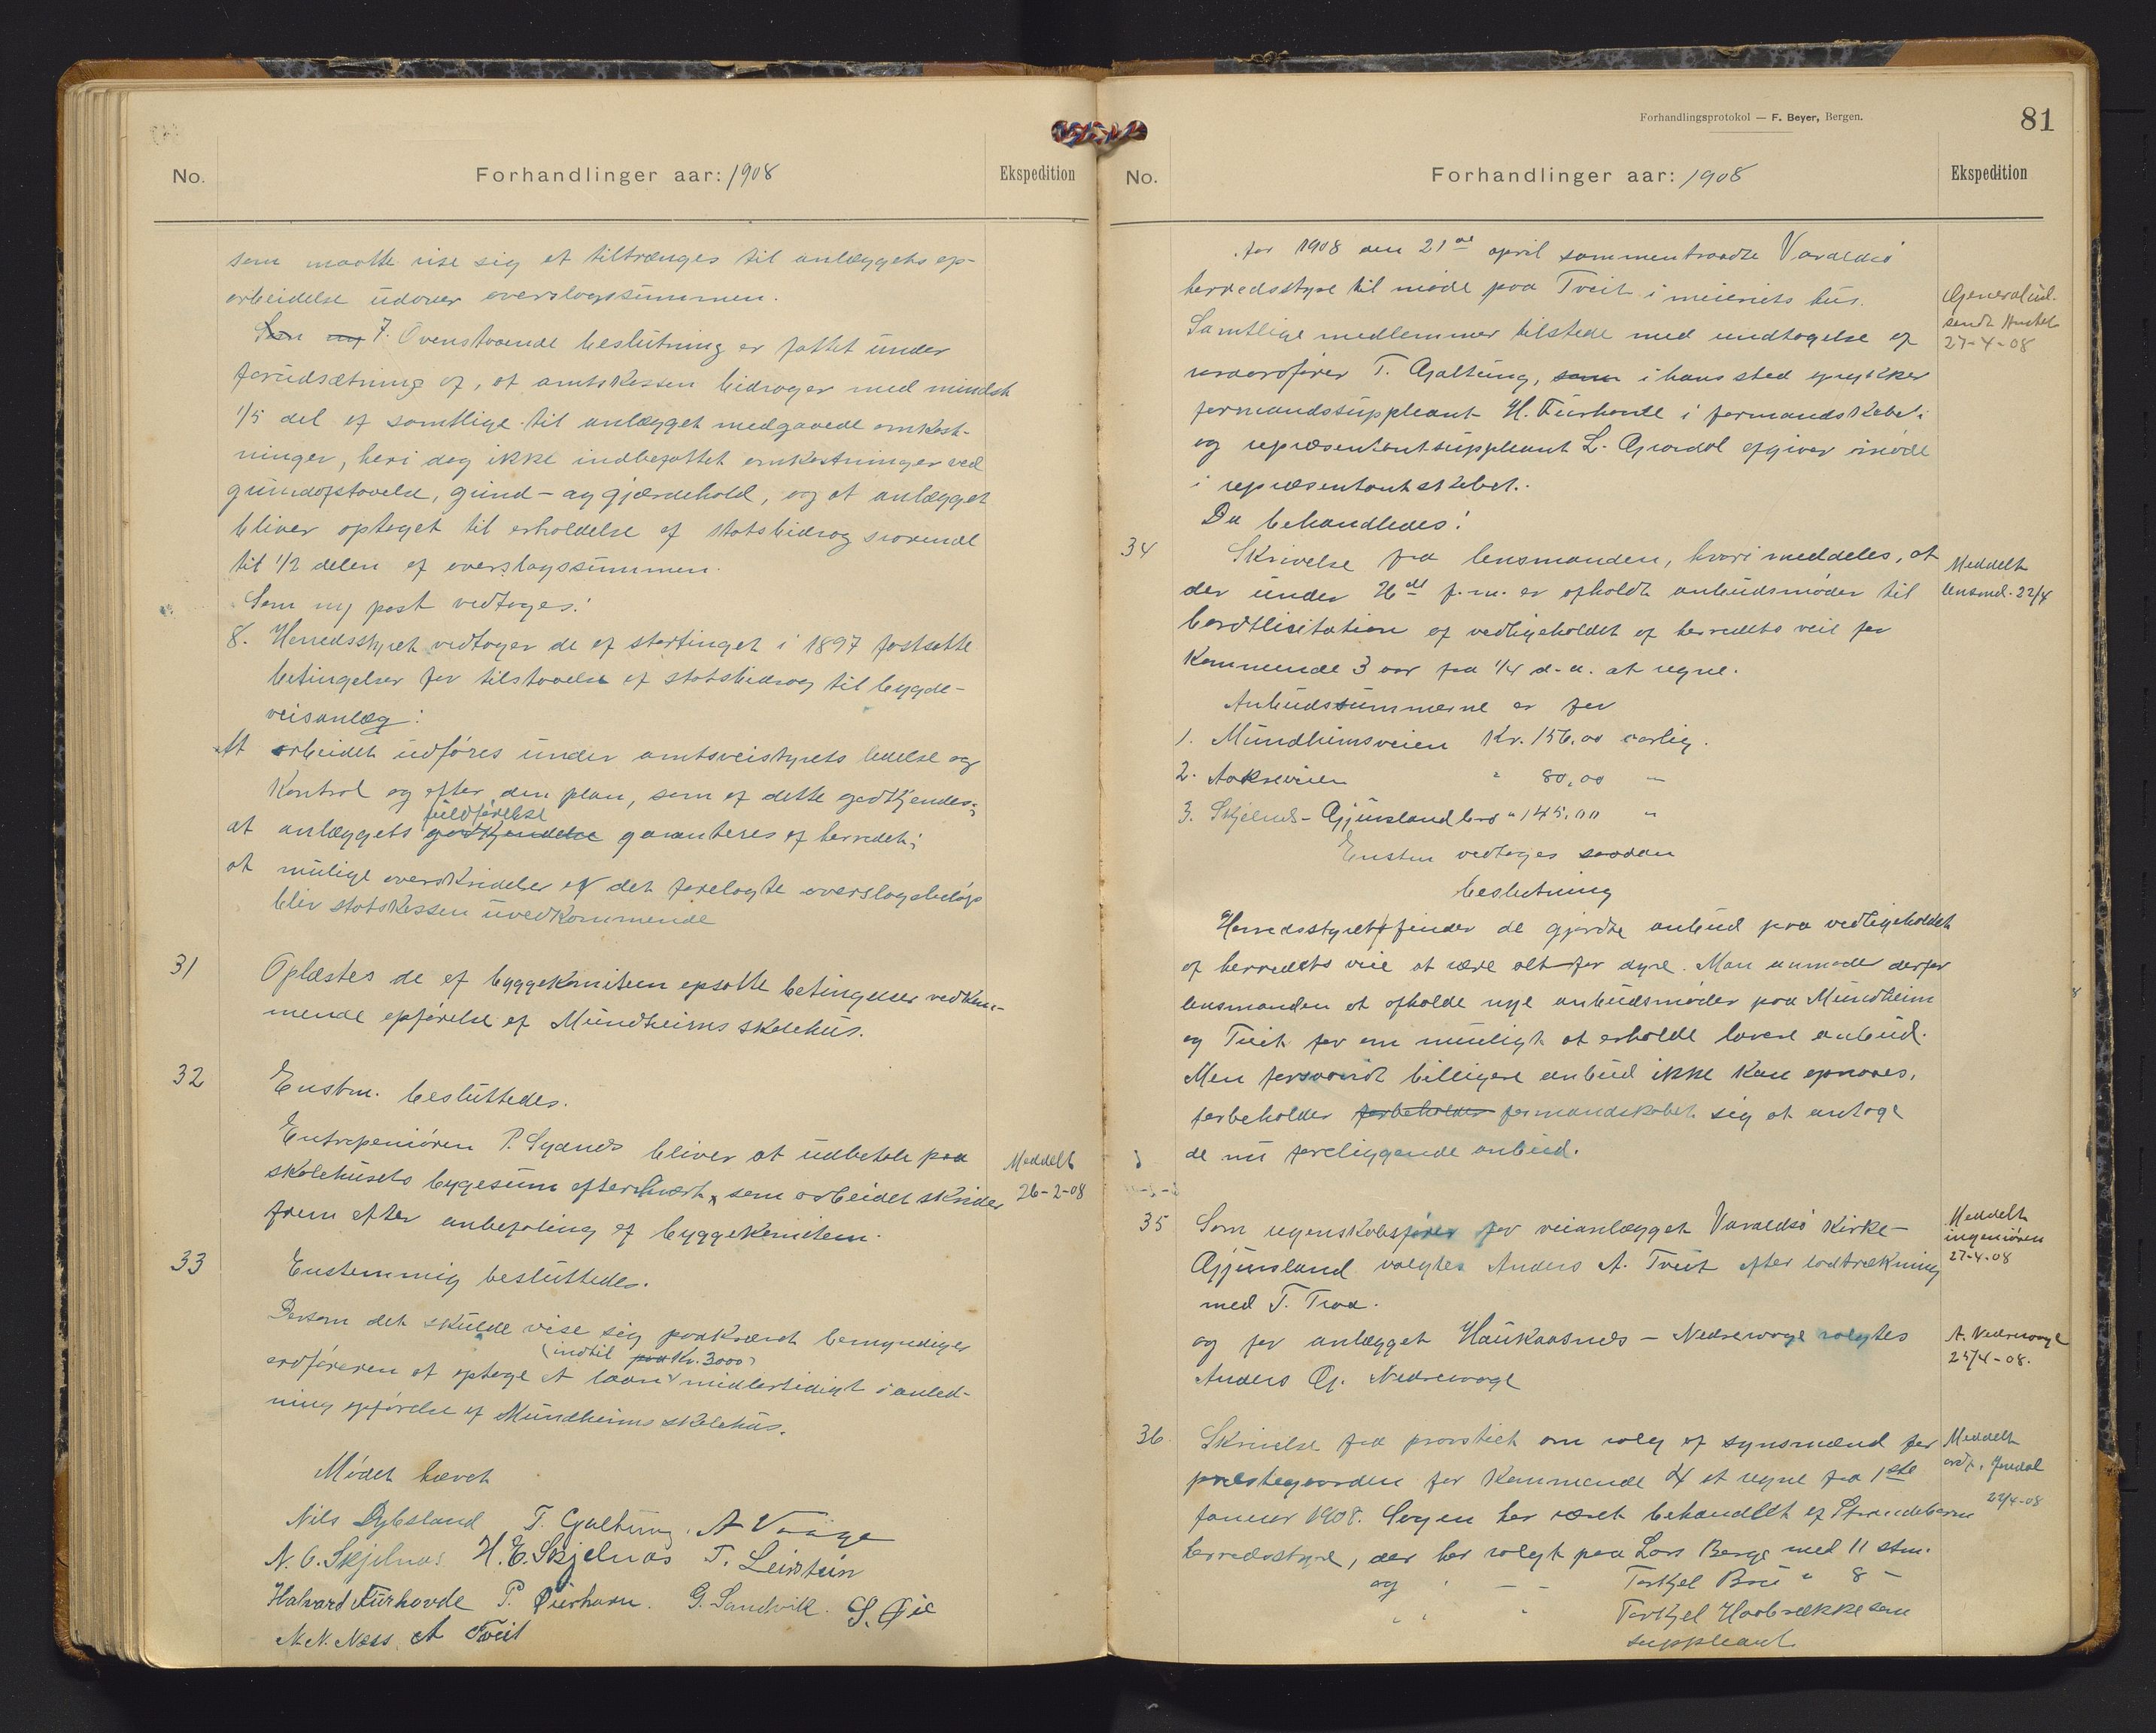 No.
Forhandlinger aar: 1908
Ekspedition
som maatte vise sig at tiltrænges til anlæggets op-
arbeidelse udover overslagssummen.
Som ny 7. Ovenstaaende beslutning er fattet under
forudsætning af, at amtskassen bidrager med mindst
1/5 del af samtlige til anlægget medgaaede omkost-
ninger, heri dog ikke indbefattet omkostninger ved
grundafstaaelse, grind- og gjærdehold, og at anlægget
bliver optaget til erholdelse af statsbidrag svarende
til 1/2 delen af overslagssummen.
Som ny post vedtoges:
8. Herredsstyret vedtager de af stortinget i 1897 fastsatte
betingelser for tilstaaelse af statsbidrag til bygde-
veisanlæg:
At arbeidet udføres under amtsveistyrets ledelse og
kontrol og efter den plan, som af dette godkjendes;
fuldførelse
at anlæggets godkjendelse garanteres af herredet;
at mulige overskridelser af det forelagte overslagsbeløp
bliv statskassen uvedkommende
31 Oplæstes de af byggekomiteen opsatte betingelser vedkom-
mende opførelse af Mundheims skolehus.
32 Enstm. besluttedes.
Entrepeniøren P. Sydnes bliver at udbetale paa
skolehusets byggesum efterhvert, som arbeidet skrider
frem efter anbefaling af byggekomiteen.
Meddelt
26-2-08
33 Enstemmig besluttedes.
Dersom det skulde vise sig paakrævet bemyndiges
(indtil paa Kr. 3000)
ordføreren at optage et laan midlertidigt i anled-
ning opførelse af Mundheims skolehus.
Mødet hævet
Nils Dybsland T. Galtung. A Vaage
N. O. Skjelnes H. E. Skjelnes T. Leirstein
Halvard Furhovde P. Øierhavn. G. Sandvik. S. Øie
M. N. Næss. A Tveit
Forhandlingsprotokol — F. Beyer, Bergen.
81
No.
Forhandlinger aar: 1908
Ekspedition
Aar 1908 den 21de april sammentraadte Varaldsø
herredsstyre til møde paa Tveit i meieriets hus.
Samtlige medlemmer tilstede med undtagelse af
varaordfører T. Galtung, som i hans sted rykker
formandssuppleant H. Furhovde i formandskabet
og repræsentantsuppleant L. Gravdal afgiver møde
i repræsentantskabet.
Da behandledes:
34 Skrivelse fra lensmanden, hvori meddeles, at
der under 26de f. m. er afholdt anbudsmøder til
bortlisitation af vedligeholdet af herredets veie for
kommende 3 aar fra 1/4 d. a. at regne.
Meddelt
lensmd. 22/4
Anbudssummerne er for
1. Mundheimsveien Kr. 156.00 aarlig.
2. Aakreveien " 80,00 "
3. Skjelnes-Gjuvsland bro " 145,00 "
Enstm vedtoges saadan
beslutning
Herredsstyret finder de gjordte anbud paa vedligeholdet
af herredets veie at være alt for dyre. Man anmoder derfor
lensmanden at afholde nye anbudsmøder paa Mundheim
og Tveit for om muligt at erholde lavere anbud.
Men forsaavidt billigere anbud ikke kan opnaaes,
forbeholder forbeholder formandskabet sig at antage
de nu foreliggende anbud.
35 Som regnskabsfører for veianlægget Varaldsø kirke-
Gjuvsland valgtes Anders A. Tveit efter lodtrækning
med T. Traa.
og for anlægget Haukaasnes - Nedrevaage valgtes
Anders G. Nedrevaage
Meddelt
ingeniøren
27-4-08
A. Nedrevaage
25/4-08.
36. Skrivelse fra provstiet om valg af synsmænd for
prestegaarden for kommende 4 at regne fra 1ste
januar 1908. Sagen har været behandlet af Strandebarm
herredsstyre, der har valgt paa Lars Berge med 11 stm.
og " — — Torkjel Bru " 8 —
" " " Torkjel Haabrække som
suppleant
Meddelt
22/4-08
Generalind.
27-4-08